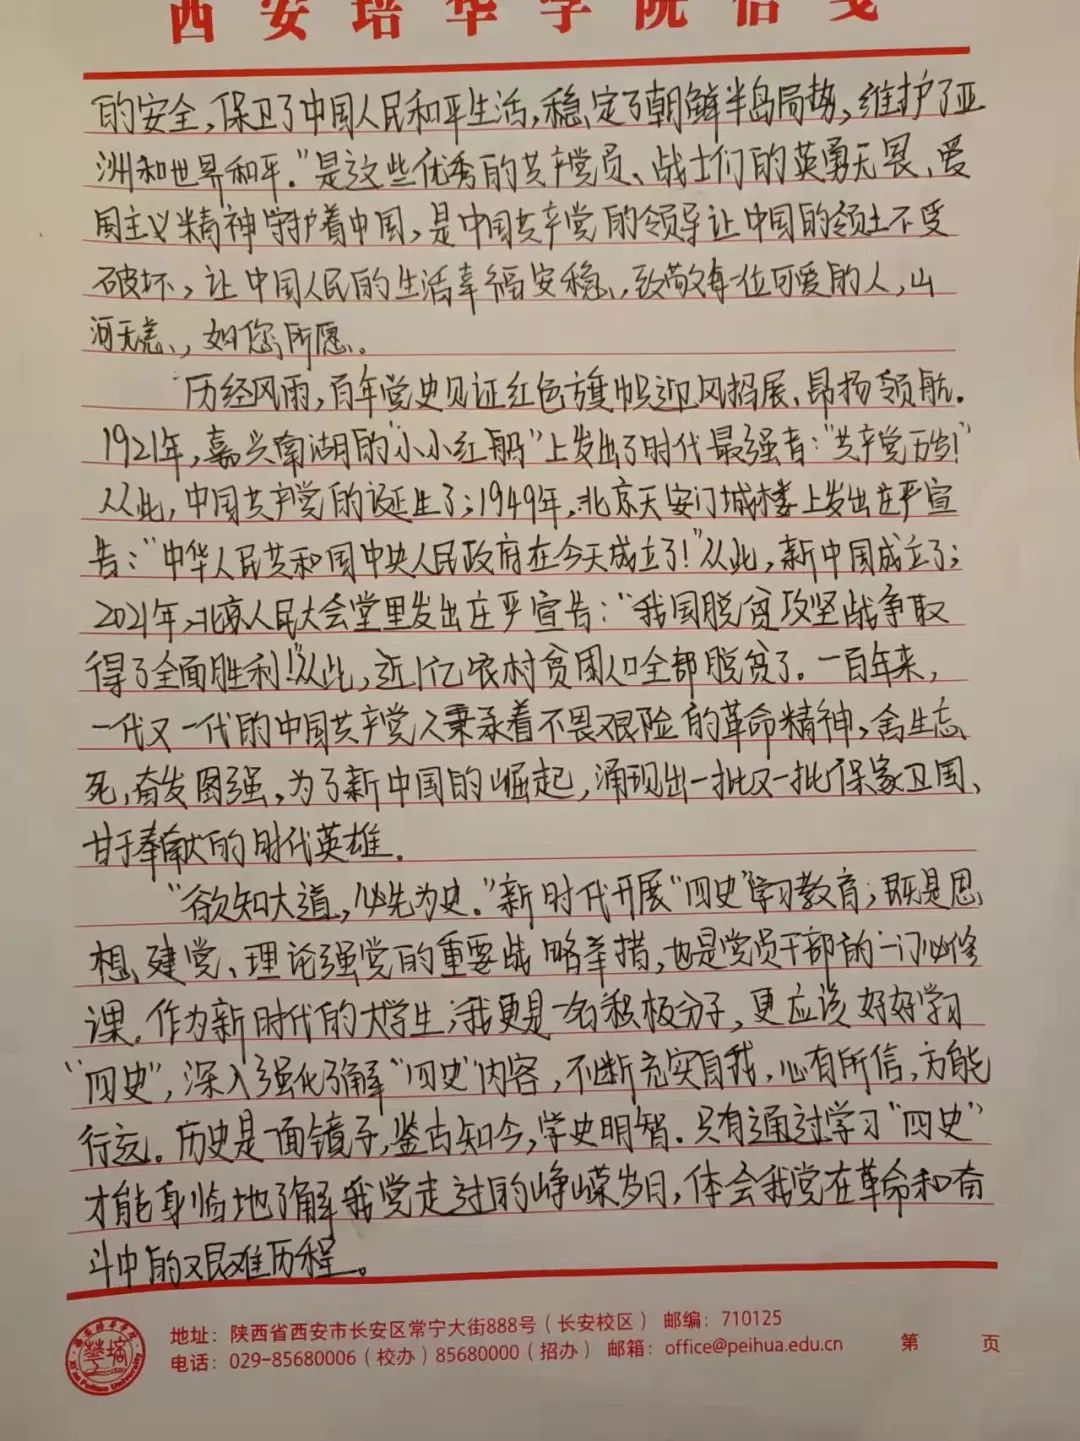 西安培华学院信笺
的安全,保卫了中国人民和平生活,稳定了朝鲜半岛局势,维护了亚
洲和世界和平."是这些优秀的共产党员、战士们的英勇无畏、爱
国主义精神守护着中国,是中国共产党的领导让中国的领土不受
破坏,让中国人民的生活幸福安稳,致敬每位可爱的人,山
河无恙,如您所愿。
历经风雨,百年党史见证红色旗帜迎风招展、昂扬领航.
1921年,嘉兴南湖的"小小红船"上发出了时代最强音:"共产党万岁!"
从此,中国共产党的诞生了;1949年,北京天安门城楼上发出庄严宣
告:"中华人民共和国中央人民政府在今天成立了!"从此,新中国成立了;
2021年,北京人民大会堂里发出庄严宣告:"我国脱贫攻坚战争取
得了全面胜利!"从此,近1亿农村贫困人口全部脱贫了。一百年来,
一代又一代的中国共产党人秉承着不畏艰险的革命精神,舍生忘
死,奋发图强,为了新中国的崛起,涌现出一批又一批保家卫国、
甘于奉献的时代英雄.
"欲知大道,必先为史."新时代开展"四史"学习教育,既是思
想建党、理论强党的重要战略举措,也是党员干部的一门必修
课.作为新时代的大学生,我更是一名积极分子,更应该好好学习
"四史",深入强化了解"四史"内容,不断充实自我,心有所信,方能
行远。历史是一面镜子,鉴古知今,学史明智.只有通过学习"四史"
才能身临地了解我党走过的峥嵘岁月,体会我党在革命和奋
斗中的艰难历程。
地址:陕西省西安市长安区常宁大街888号(长安校区) 邮编:710125
电话:029-85680006(校办)85680000(招办) 邮箱:office@peihua.edu.cn 第 页